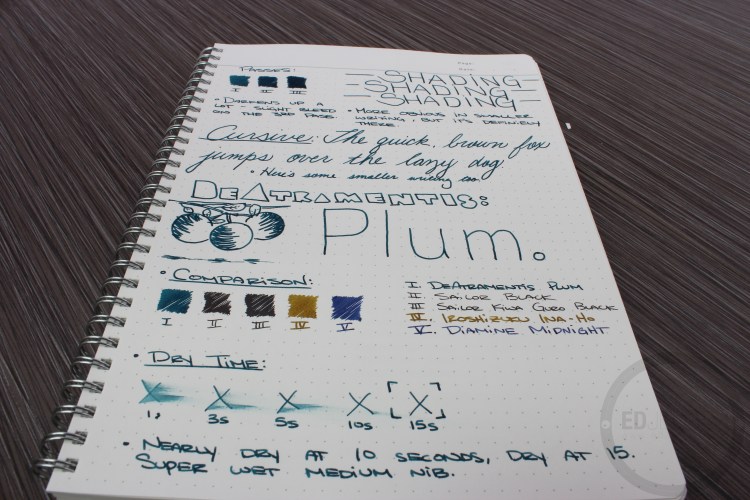 Passes:
I II III
SHADING
SHADING
SHADING
• Darkens up a lot - slight bleed on the 3rd pass.
• More obvious in smaller writing, but it's definitely there.
Cursive: The quick, brown fox
jumps over the lazy dog
• Here's some smaller writing too.
DeAtramentis:
Plum.
• Comparison:
I II III IV V
I. DeAtramentis Plum
II Sailor Black
III Sailor Kiwa Guro Black
IV. Iroshizuku Ina-Ho
V. Diamine Midnight
• Dry Time:
1s 3s 5s 10s 15s
• Nearly dry at 10 seconds, dry at 15.
Super wet medium nib.
ED